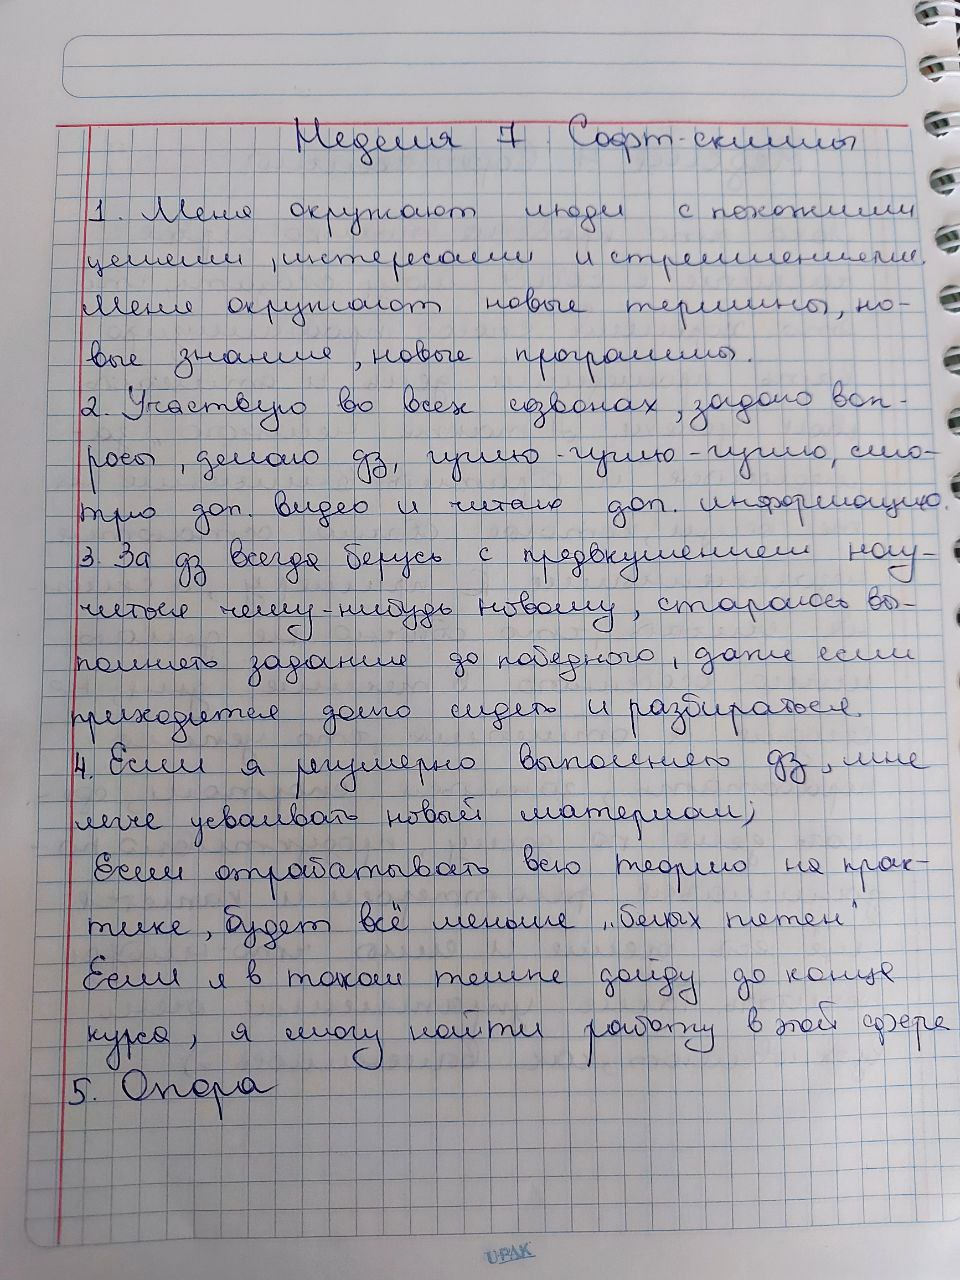 Неделя 7 Софт-скиллы
1. Меня окружают люди с похожими
целями, интересами и стремлениями.
Меня окружают новые термины, но-
вые знания, новые программы.
2. Участвую во всех созвонах, задаю воп-
росы, делаю дз, гуглю-гуглю-гуглю, смо-
трю доп. видео и читаю доп. информацию.
3. За дз всегда берусь с предвкушением нау-
читься чему-нибудь новому, стараюсь вы-
полнить задание до победного, даже если
приходится долго сидеть и разбираться.
4. Если я регулярно выполняю дз, мне
легче усваивать новый материал;
Если отрабатывать всю теорию на прак-
тике, будет всё меньше „белых пятен"
Если я в таком темпе дойду до конца
курса, я смогу найти работу в этой сфере
5. Опора
UPAK